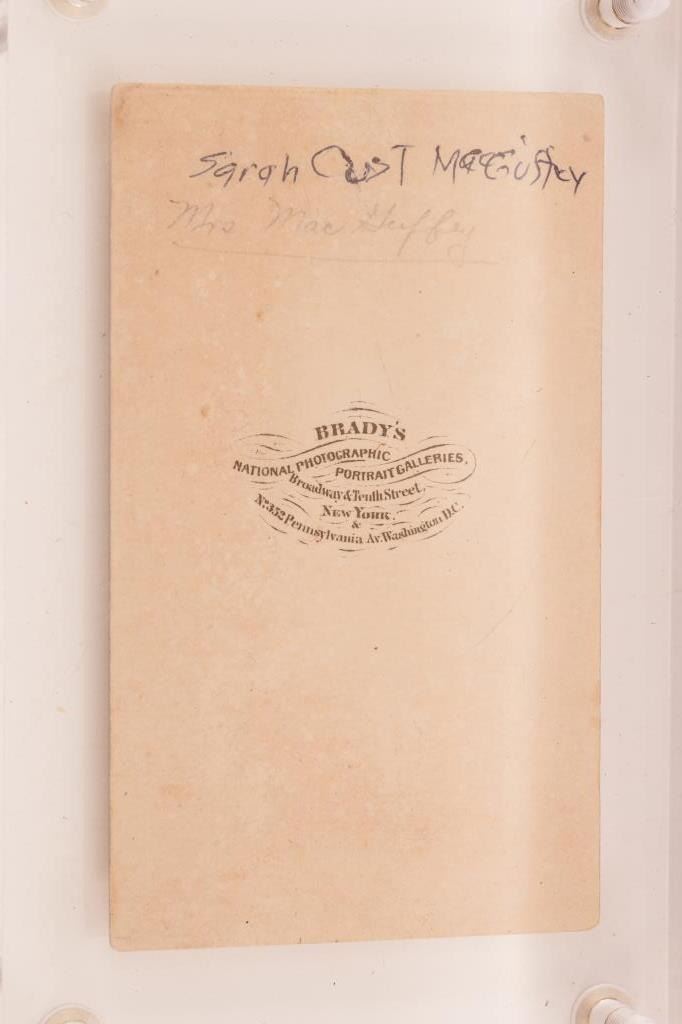 Sarah Cust
Mrs Mac Guffey
BRADY'S
NATIONAL PHOTOGRAPHIC
PORTRAIT GALLERIES,
Broadway & Tenth Street,
NEW YORK
&
No. 352 Pennsylvania Av. Washington D.C.